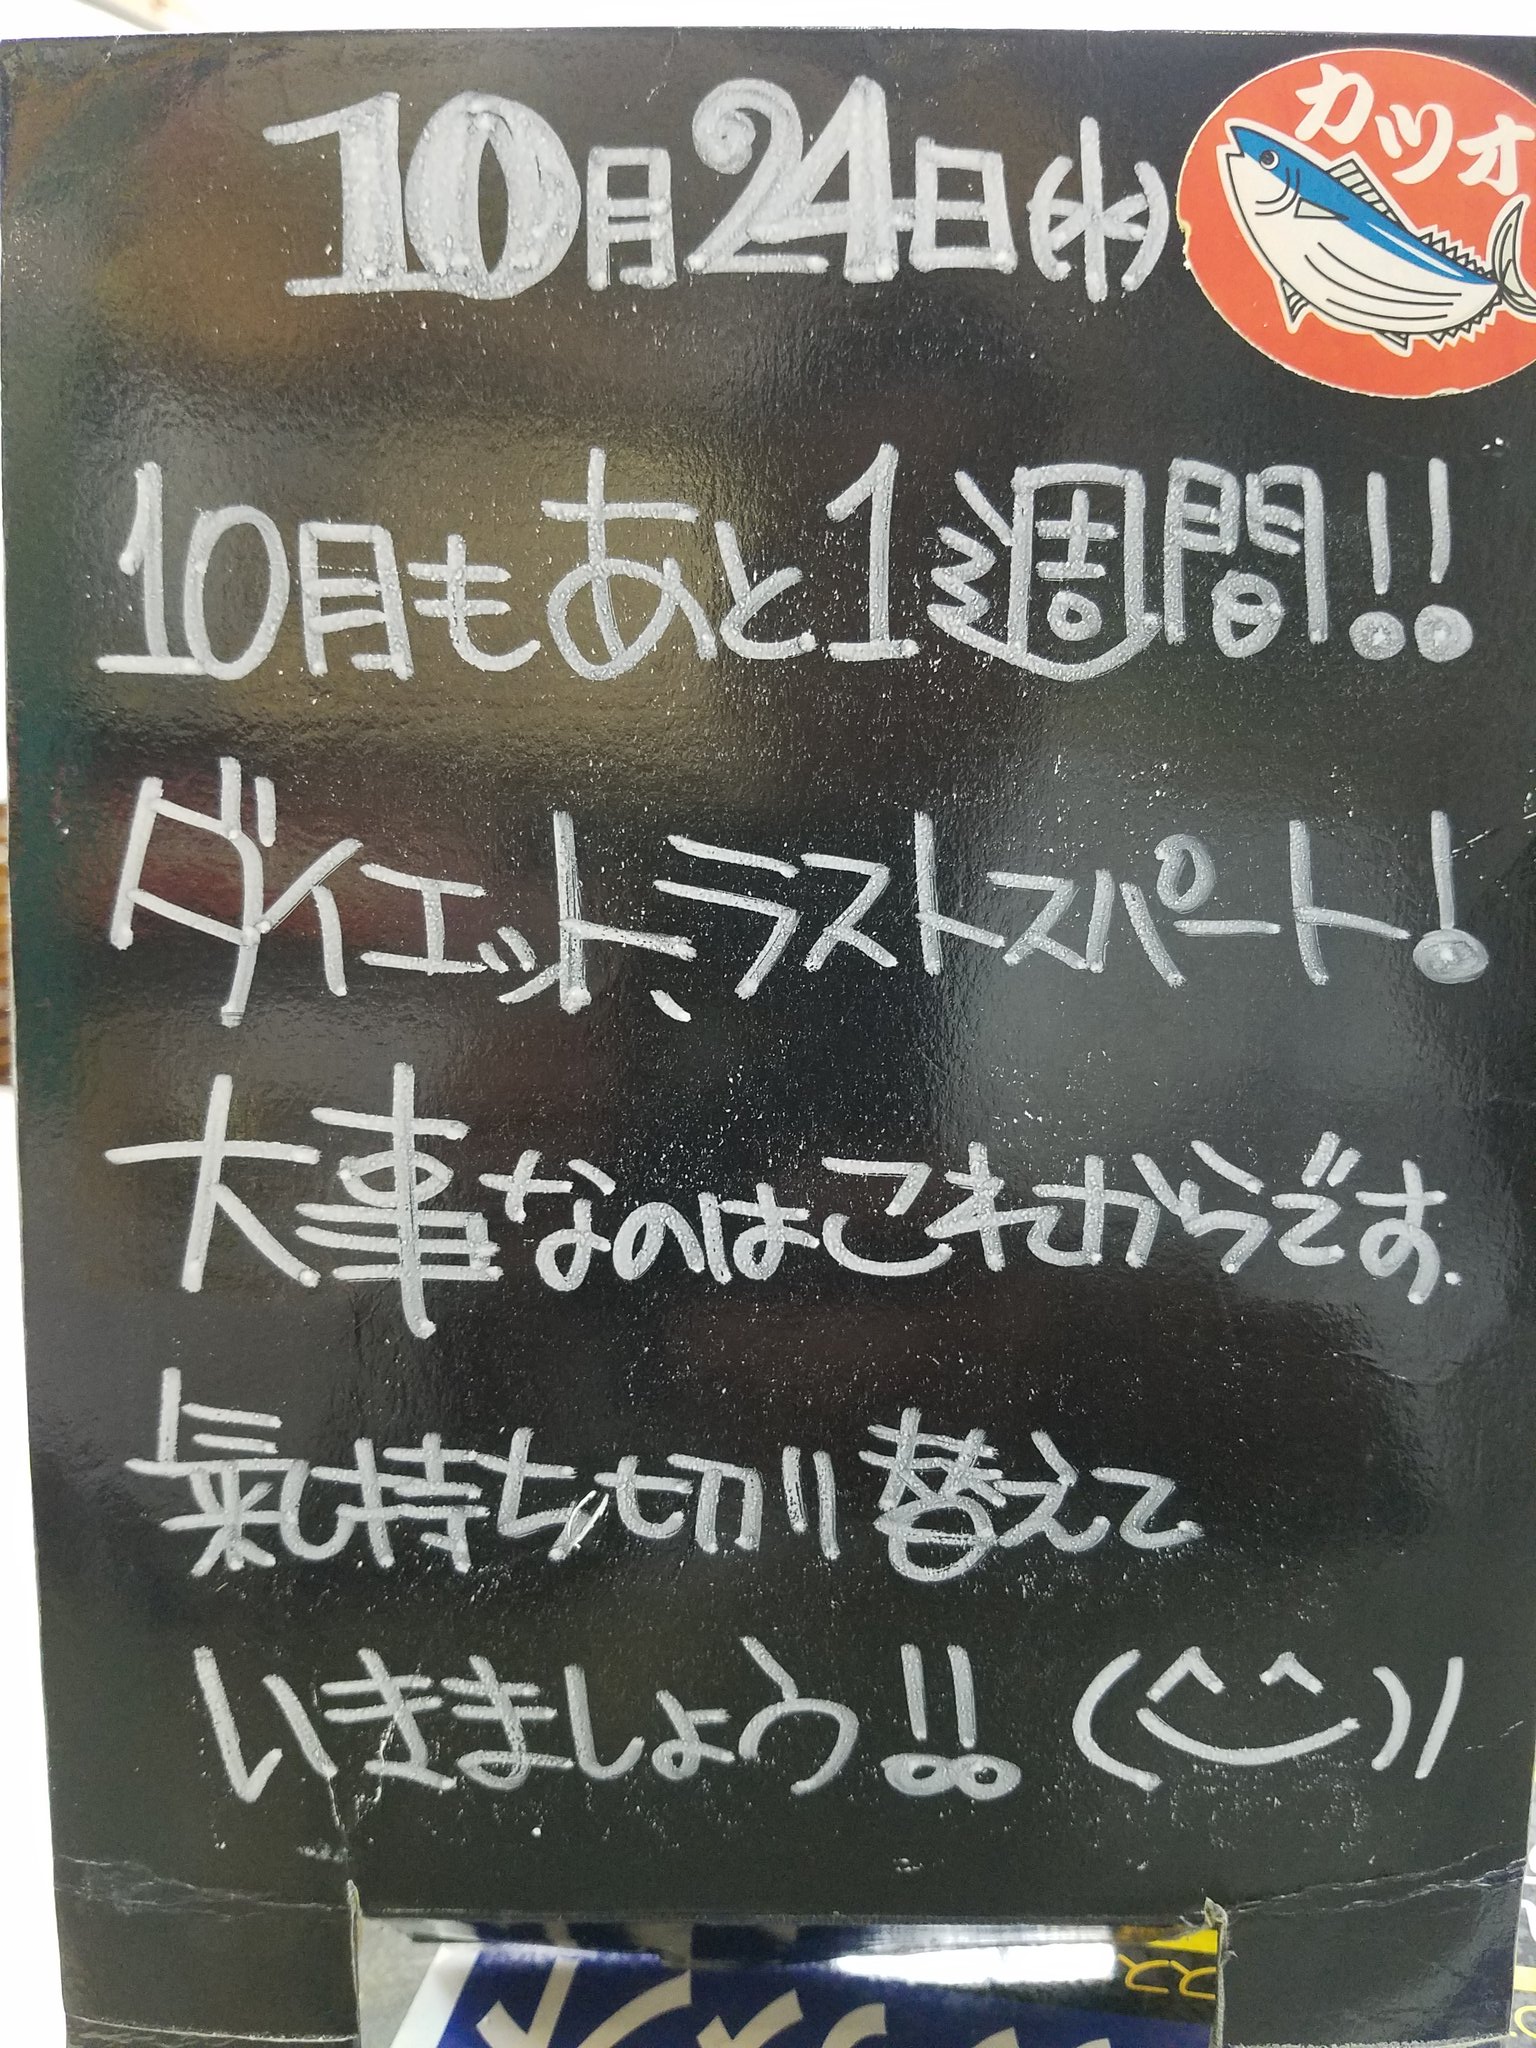 10月24日(水)
カツオ
10月もあと1週間!!
ダイエット、ラストスパート!
大事なのはこれからです.
氣持ち切り替えて
いきましょう!! (^‿^)/